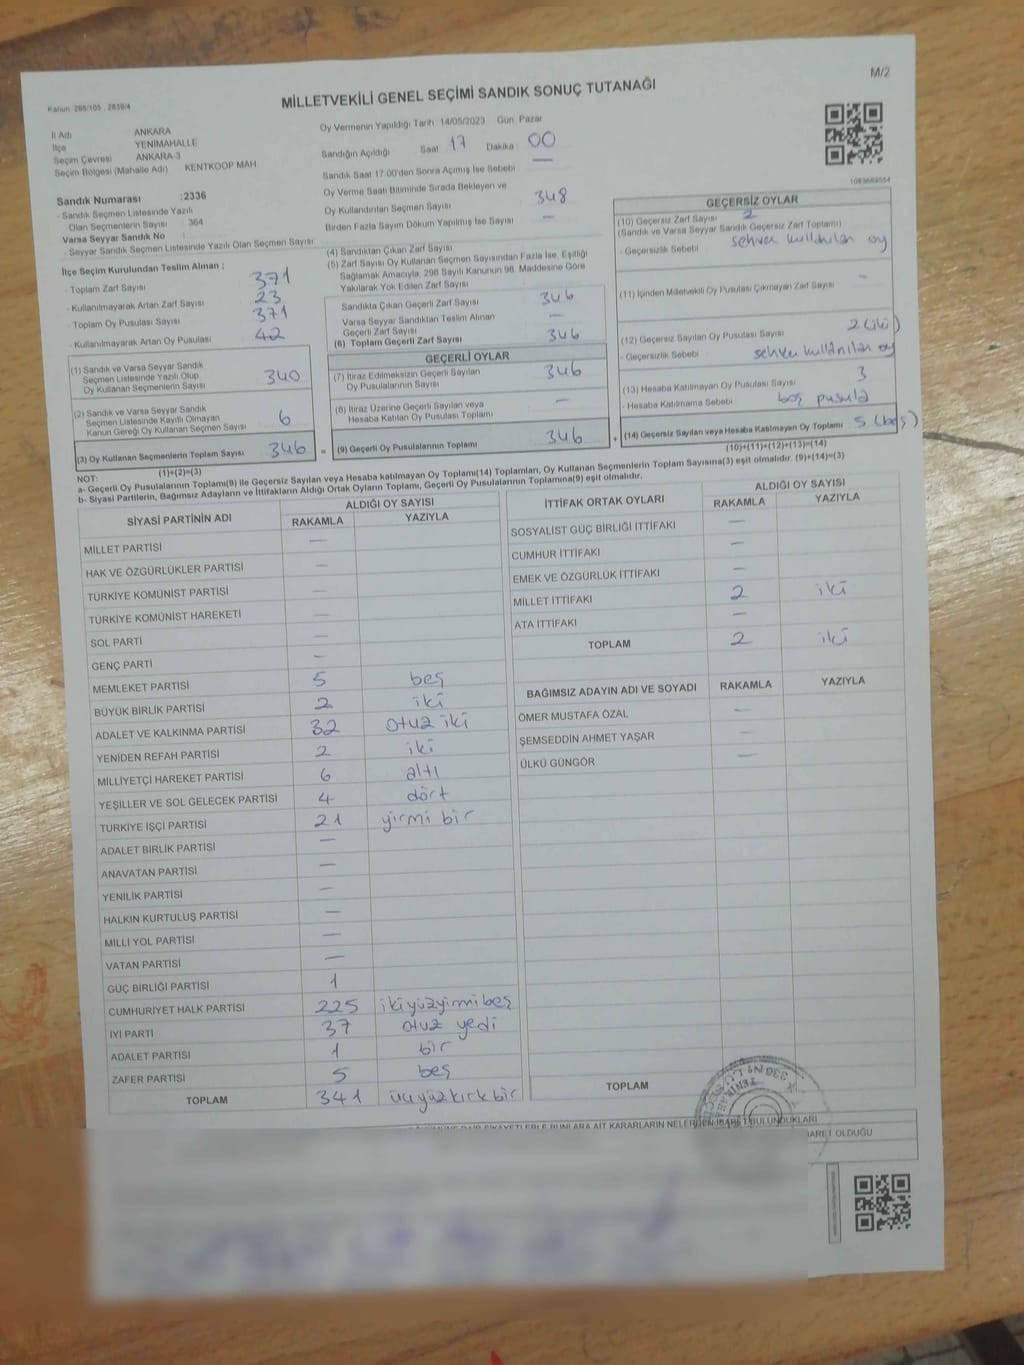 M/2
Kanun: 298/105 , 2839/4
MİLLETVEKİLİ GENEL SEÇİMİ SANDIK SONUÇ TUTANAĞI
İl Adı : ANKARA
İlçe : YENİMAHALLE
Seçim Çevresi : ANKARA-3
Seçim Bölgesi (Mahalle Adı) : KENTKOOP MAH
Sandık Numarası :2336
- Sandık Seçmen Listesinde Yazılı
Olan Seçmenlerin Sayısı : 364
Varsa Seyyar Sandık No :
- Seyyar Sandık Seçmen Listesinde Yazılı Olan Seçmen Sayısı:
İlçe Seçim Kurulundan Teslim Alınan ;
- Toplam Zarf Sayısı 371
- Kullanılmayarak Artan Zarf Sayısı 23
- Toplam Oy Pusulası Sayısı 371
- Kullanılmayarak Artan Oy Pusulası 42
(1) Sandık ve Varsa Seyyar Sandık
Seçmen Listesinde Yazılı Olup
Oy Kullanan Seçmenlerin Sayısı 340
(2) Sandık ve Varsa Seyyar Sandık
Seçmen Listesinde Kayıtlı Olmayan
Kanun Gereği Oy Kullanan Seçmen Sayısı 6
(3) Oy Kullanan Seçmenlerin Toplam Sayısı 346 =
(1)+(2)=(3)
Oy Vermenin Yapıldığı Tarih : 14/05/2023 Gün: Pazar
Sandığın Açıldığı Saat 17 Dakika 00
Sandık Saat 17:00'den Sonra Açımış İse Sebebi —
Oy Verme Saati Bitiminde Sırada Bekleyen ve
Oy Kullandırılan Seçmen Sayısı
Birden Fazla Sayım Döküm Yapılmış İse Sayısı —
348
(4) Sandıktan Çıkan Zarf Sayısı
(5) Zarf Sayısı Oy Kullanan Seçmen Sayısından Fazla İse, Eşitliği
Sağlamak Amacıyla, 298 Sayılı Kanunun 98. Maddesine Göre
Yakılarak Yok Edilen Zarf Sayısı
Sandıkta Çıkan Geçerli Zarf Sayısı 346
Varsa Seyyar Sandıktan Teslim Alınan
Geçerli Zarf Sayısı —
(6) Toplam Geçerli Zarf Sayısı 346
GEÇERLİ OYLAR
(7) İtiraz Edilmeksizin Geçerli Sayılan
Oy Pusulalarının Sayısı 346
(8) İtiraz Üzerine Geçerli Sayılan veya
Hesaba Katılan Oy Pusulası Toplamı —
(9) Geçerli Oy Pusulalarının Toplamı 346 +
1083689554
GEÇERSİZ OYLAR
(10) Geçersiz Zarf Sayısı 2
(Sandık ve Varsa Seyyar Sandık Geçersiz Zarf Toplamı)
- Geçersizlik Sebebi : sehven kullanılan oy
(11) İçinden Milletvekili Oy Pusulası Çıkmayan Zarf Sayısı —
(12) Geçersiz Sayılan Oy Pusulası Sayısı 2 (iki)
- Geçersizlik Sebebi : sehven kullanılan oy
(13) Hesaba Katılmayan Oy Pusulası Sayısı 3
- Hesaba Katılmama Sebebi : boş pusula
(14) Geçersiz Sayılan veya Hesaba Katılmayan Oy Toplamı 5 (beş)
(10)+(11)+(12)+(13)=(14)
NOT:
a- Geçerli Oy Pusulalarının Toplamı(9) ile Geçersiz Sayılan veya Hesaba katılmayan Oy Toplamı(14) Toplamları, Oy Kullanan Seçmenlerin Toplam Sayısına(3) eşit olmalıdır. (9)+(14)=(3)
b- Siyasi Partilerin, Bağımsız Adayların ve İttifakların Aldığı Ortak Oyların Toplamı, Geçerli Oy Pusulalarının Toplamına(9) eşit olmalıdır.
SİYASİ PARTİNİN ADI ALDIĞI OY SAYISI
RAKAMLA YAZIYLA
MİLLET PARTİSİ —
HAK VE ÖZGÜRLÜKLER PARTİSİ —
TÜRKİYE KOMÜNİST PARTİSİ —
TÜRKİYE KOMÜNİST HAREKETİ —
SOL PARTİ —
GENÇ PARTİ —
MEMLEKET PARTİSİ 5 beş
BÜYÜK BİRLİK PARTİSİ 2 iki
ADALET VE KALKINMA PARTİSİ 32 otuz iki
YENİDEN REFAH PARTİSİ 2 iki
MİLLİYETÇİ HAREKET PARTİSİ 6 altı
YEŞİLLER VE SOL GELECEK PARTİSİ 4 dört
TÜRKİYE İŞÇİ PARTİSİ 21 yirmi bir
ADALET BİRLİK PARTİSİ —
ANAVATAN PARTİSİ —
YENİLİK PARTİSİ —
HALKIN KURTULUŞ PARTİSİ —
MİLLİ YOL PARTİSİ —
VATAN PARTİSİ —
GÜÇ BİRLİĞİ PARTİSİ 1
CUMHURİYET HALK PARTİSİ 225 ikiyüzyirmibeş
İYİ PARTİ 37 otuz yedi
ADALET PARTİSİ 1 bir
ZAFER PARTİSİ 5 beş
TOPLAM 341 üçyüzkırkbir
İTTİFAK ORTAK OYLARI ALDIĞI OY SAYISI
RAKAMLA YAZIYLA
SOSYALİST GÜÇ BİRLİĞİ İTTİFAKI —
CUMHUR İTTİFAKI —
EMEK VE ÖZGÜRLÜK İTTİFAKI —
MİLLET İTTİFAKI 2 iki
ATA İTTİFAKI —
TOPLAM 2 iki
BAĞIMSIZ ADAYIN ADI VE SOYADI RAKAMLA YAZIYLA
ÖMER MUSTAFA ÖZAL —
ŞEMSEDDİN AHMET YAŞAR —
ÜLKÜ GÜNGÖR —
TOPLAM
BULUNDUKLARI
OLDUĞU